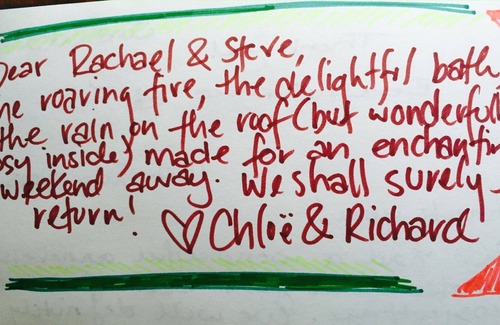 Dear Rachael & Steve,
the roaring fire, the delightful bath,
the rain on the roof (but wonderfully
cosy inside) made for an enchanting
weekend away. We shall surely
return! ♡ Chloë & Richard